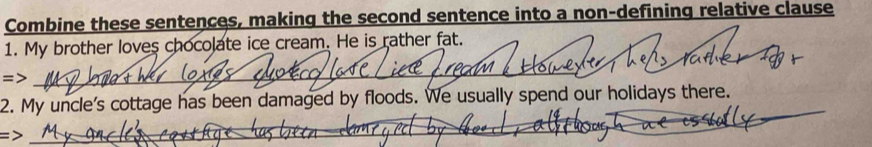 Combine these sentences, making the second sentence into a non-defining relative clause
1. My brother loves chocolate ice cream. He is rather fat.
=> My brother loves chocolate ice cream However, he is rather
2. My uncle's cottage has been damaged by floods. We usually spend our holidays there.
=> My uncle's cottage has been by although we